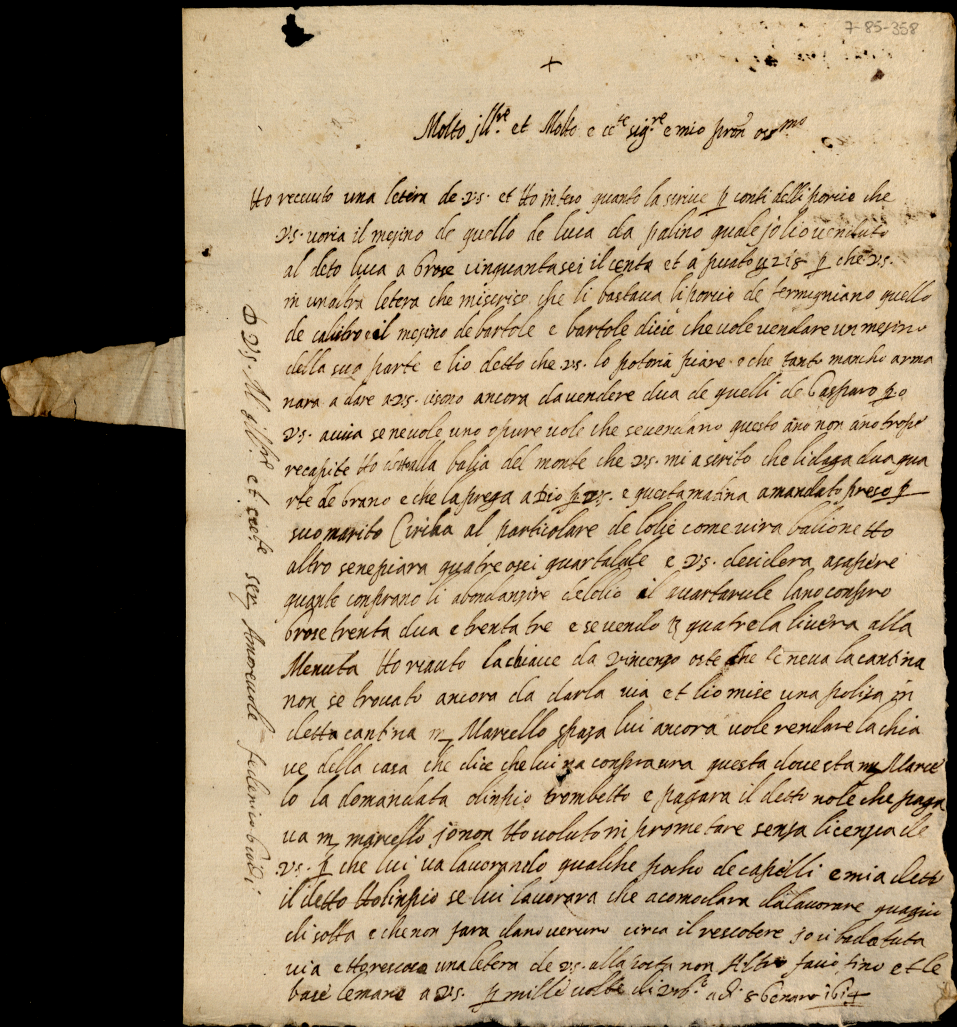 7-85-358
+
Molto Ill.re et Molto e cc.te sig.re e mio pron oss.mo
Ho receuto una letera de vs. et Ho inteso quanto la scrive p conti delli porcie che
vs. voria il mesino de quello de luca da palino quale jo lio venduto
al deto luca a brose cinquanta sei il cento et a puato 218 p che vs.
in unaltra letera che miscrise che li bastava li porcie de fermigniano quello
de calistro e il mesino de bartole e bartole dicie che vole vendare un mesino
della sua parte e lio detto che vs. lo poteria piare o che tanto mancho arma
nara a dare a vs. cisono ancora da vendere dua de quelli de Gasparo p o
vs. avisa se ne vole uno o pure vole che se vendano questo ano non ano tropo
recapite Ho detto alla balia del monte che vs. mi a scrito che li daga dua qua
rte de grano e che la prega a Dio p vs. e questa matina a mandato preso p
suo marito Circha al particolare de lolie come vira balionetto
altro se ne piara quatro o sei quartalule e vs. desidera a sapere
quante comprano li abondanzire delolio il quartarule lano compro
brose trenta dua e trenta tre e se vende quatre la livera alla
Menuta Ho riauto la chiave da Vincenzo oste che teneva la cantina
non se trovato ancora da darla via et lio mise una polisa in
detta cantina m Marcello spaza lui ancora vole rendare la chia
ve della casa che dice che lui na comprauna questa dove sta m Marce
lo la domandata olinpio trombetto e pagara il detto nole che paga
va m marcello jo non Ho voluto ni prometare sensa licenzia de
vs. p che lui va lavorando qualche pocho de capelli e mia detto
il detto Holinpio se lui lavorara che acomodara da lavorare quagiu
di sotta e che non fara dano veruno circa il rescotere jo ci bado tuta
via e Ho rescoso una letera de vs. alla posta non Altro facio fine et le
bacie le mane a vs. p mille volte di Urb.o a di 8 Genaro 1614
D Vs. M Ill.re et eccte ser Amorevole federico biondi